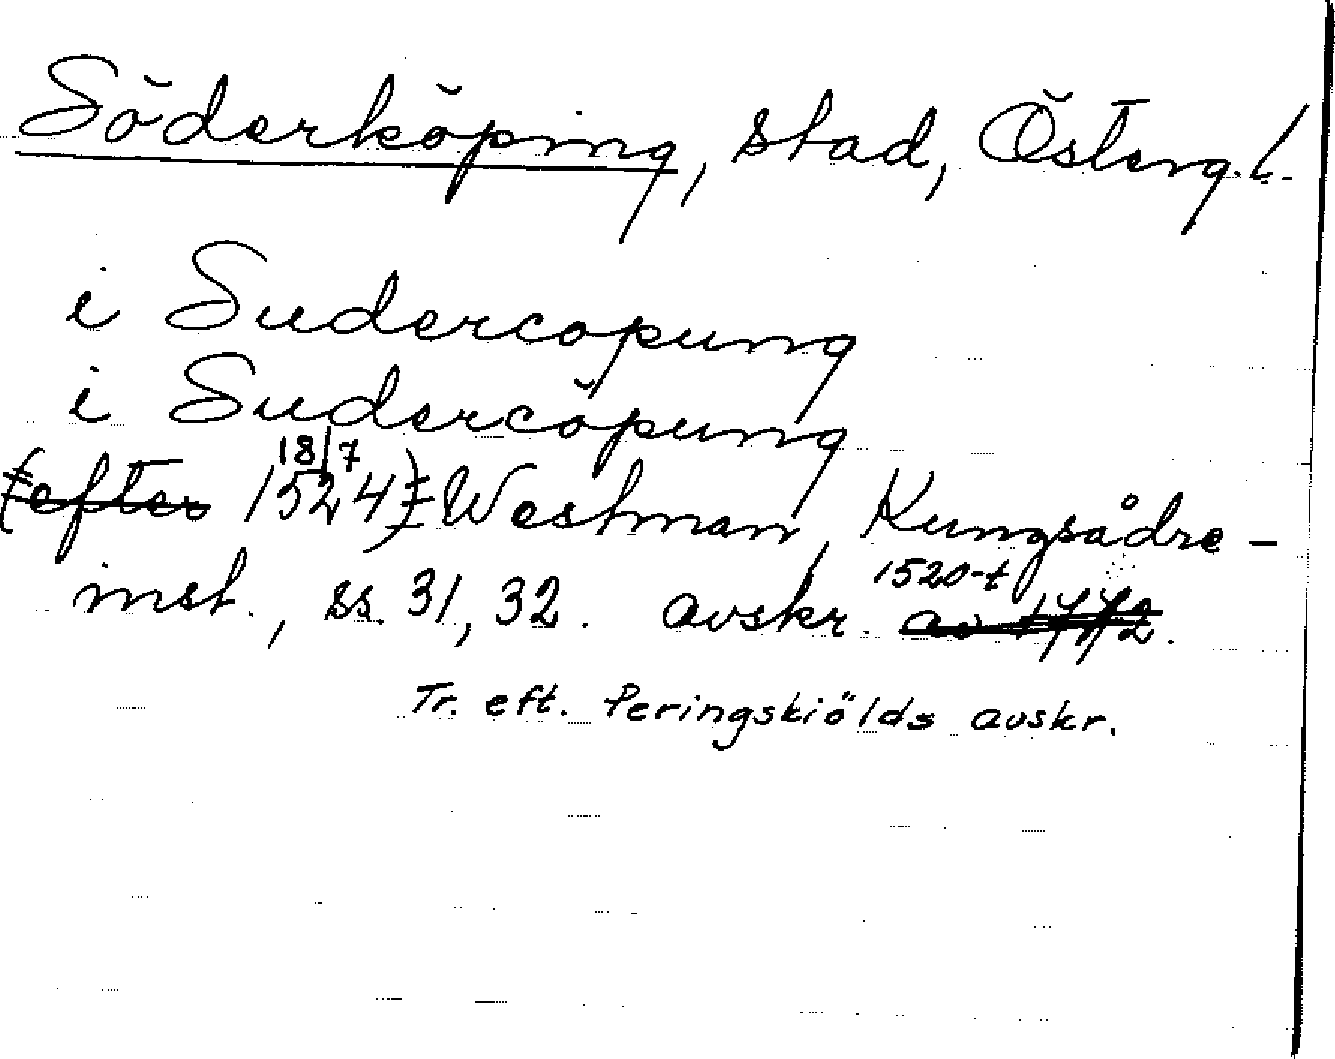 Söderköping, stad, Österg. l.
i Sudercopung
i Sudercöpung
18/7
(efter 1524) Westman, Kungsådre-
inst., ss. 31, 32. avskr. 1520-t av 1772.
Tr. eft. Peringskiölds avskr.